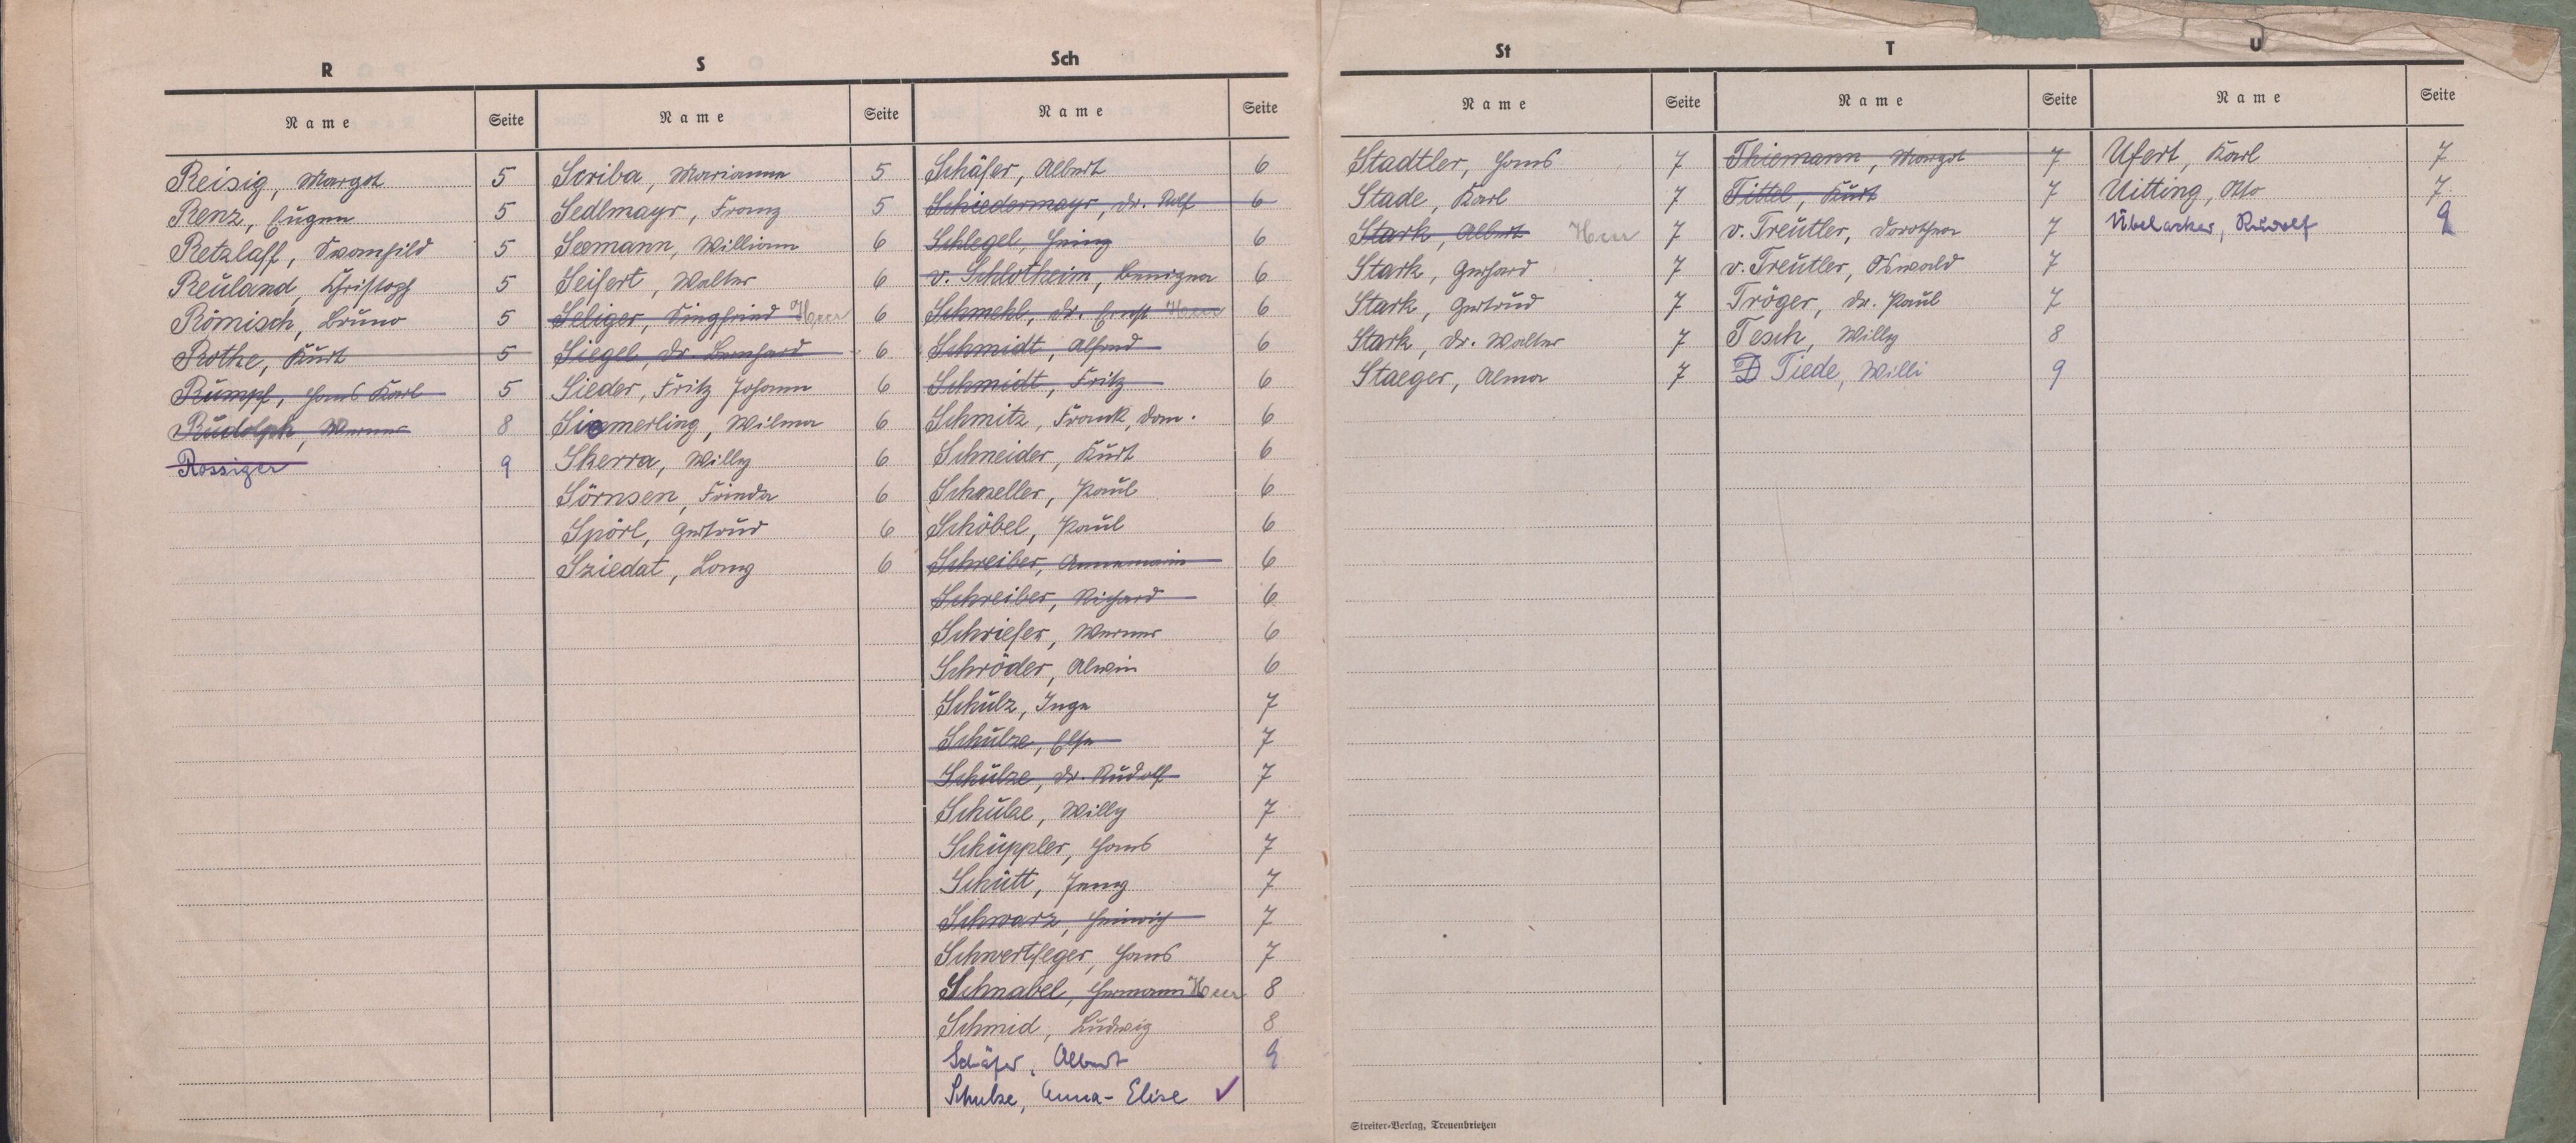 R
Name Seite
Reisig, Margot 5
Renz, Eugen 5
Retzlaff, Swanhild 5
Reuland, Christoph 5
Römisch, Bruno 5
Rothe, Kurt 5
Rumpf, Hans Karl 5
Rudolph, Werner 8
Rossiger 9
S
Name Seite
Scriba, Marianne 5
Sedlmayr, Franz 5
Seemann, William 6
Seifert, Walter 6
Seliger, Siegfried Heer 6
Siegel, Dr. Bernhard 6
Sieder, Fritz Johann 6
Siemerling, Wilma 6
Skerra, Willy 6
Sörnsen, Frieda 6
Spörl, Gertrud 6
Sziedat, 6
Sch
Name Seite
Schäfer, Albert 6
Schiedermayr, Dr. Rolf 6
Schlegel, Heinz 6
v. Schlotheim, Benigna 6
Schmehl, Dr. Ernst Heer 6
Schmidt, Alfred 6
Schmidt, Fritz 6
Schmitz, Frank, Dom. 6
Schneider, Kurt 6
Schneller, Paul 6
Schöbel, Paul 6
Schreiber, Annemarie 6
Schreiber, Richard 6
Schriefer, Werner 6
Schröder, Alwin 6
Schulz, Inge 7
Schulze, Else 7
Schulze, Dr. Rudolf 7
Schulze, Willy 7
Schüppler, Hans 7
Schütt, Jenny 7
Schwarz, Heinrich 7
Schwertfeger, Hans 7
Schnabel, Hermann Heer 8
Schmid, Ludwig 8
Schäfer, Albert 9
Schulze, Anna-Elise ✓
St
Name Seite
Stadtler, Hans 7
Stade, Karl 7
Stark, Albert Heer 7
Stark, Gerhard 7
Stark, Gertrud 7
Stark, Dr. Walter 7
Staeger, Alma 7
T
Name Seite
Thiemann, Margot 7
Tittel, Kurt 7
v. Treutler, Dorothea 7
v. Treutler, Oswald 7
Tröger, Dr. Paul 7
Tesch, Willy 8
Tiede, Willi 9
U
Name Seite
Ufert, Karl 7
Uitting, Otto 7
Übelacker, Rudolf 9
Streiter-Verlag, Treuenbrietzen